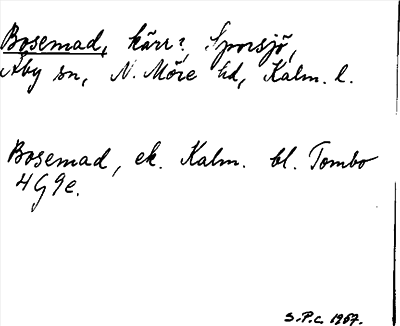 Bosemad, kärr?, Sporsjö,
Åby sn, N. Möre hd, Kalm. l.
Bosemad, ek. Kalm. bl. Tombo
4G9e.
S.P.c. 1967.